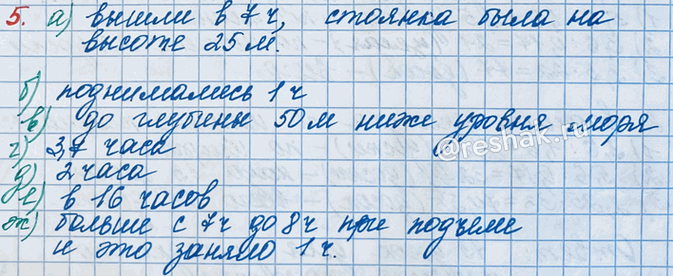 5. а) вышли в 7 ч, стоянка была на
высоте 25 м.
б) поднимались 1 ч
в) до глубины 50 м ниже уровня моря
г) 3,7 часа
@reshak.ru
д) 2 часа
е) в 16 часов
ж) больше с 7ч до 8ч при подъеме
и это заняло 1 ч.